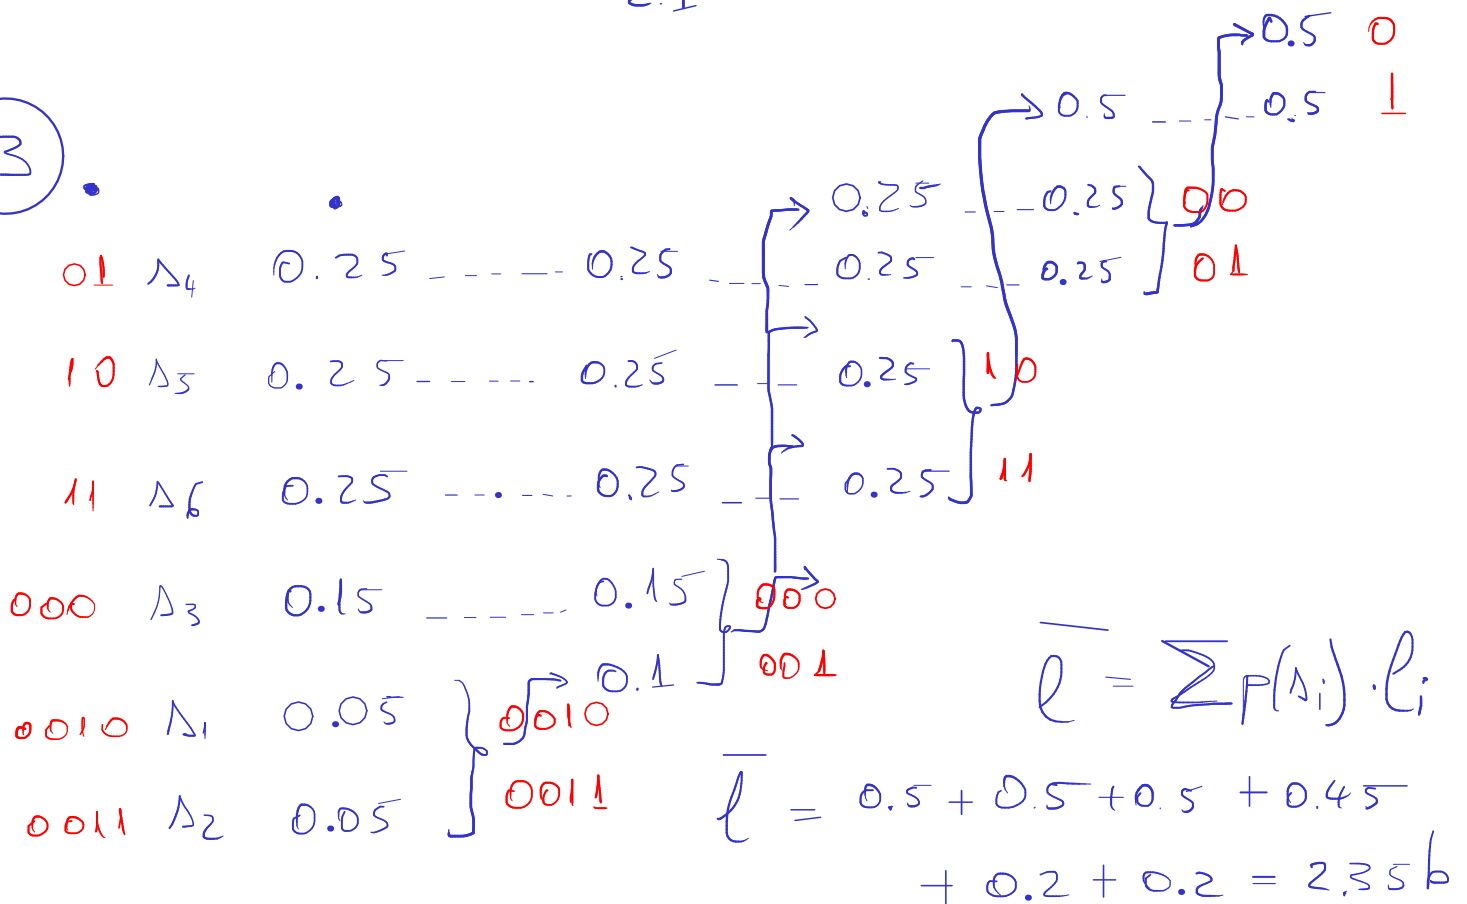 0.5 0
0.5 ---- 0.5 1
3
0.25 --- 0.25 } 00
01 s₄ 0.25 ----- 0.25 ----- 0.25 --- 0.25 01
10 s₅ 0.25 ----- 0.25 --- 0.25 } 10
11 s₆ 0.25 ----- 0.25 --- 0.25 11
000 s₃ 0.15 ----- 0.15 } 000
0.1 001
0010 s₁ 0.05 } 0010
0011 s₂ 0.05 0011
l̅ = Σ p(sᵢ) · lᵢ
l̅ = 0.5 + 0.5 + 0.5 + 0.45
+ 0.2 + 0.2 = 2.35 b